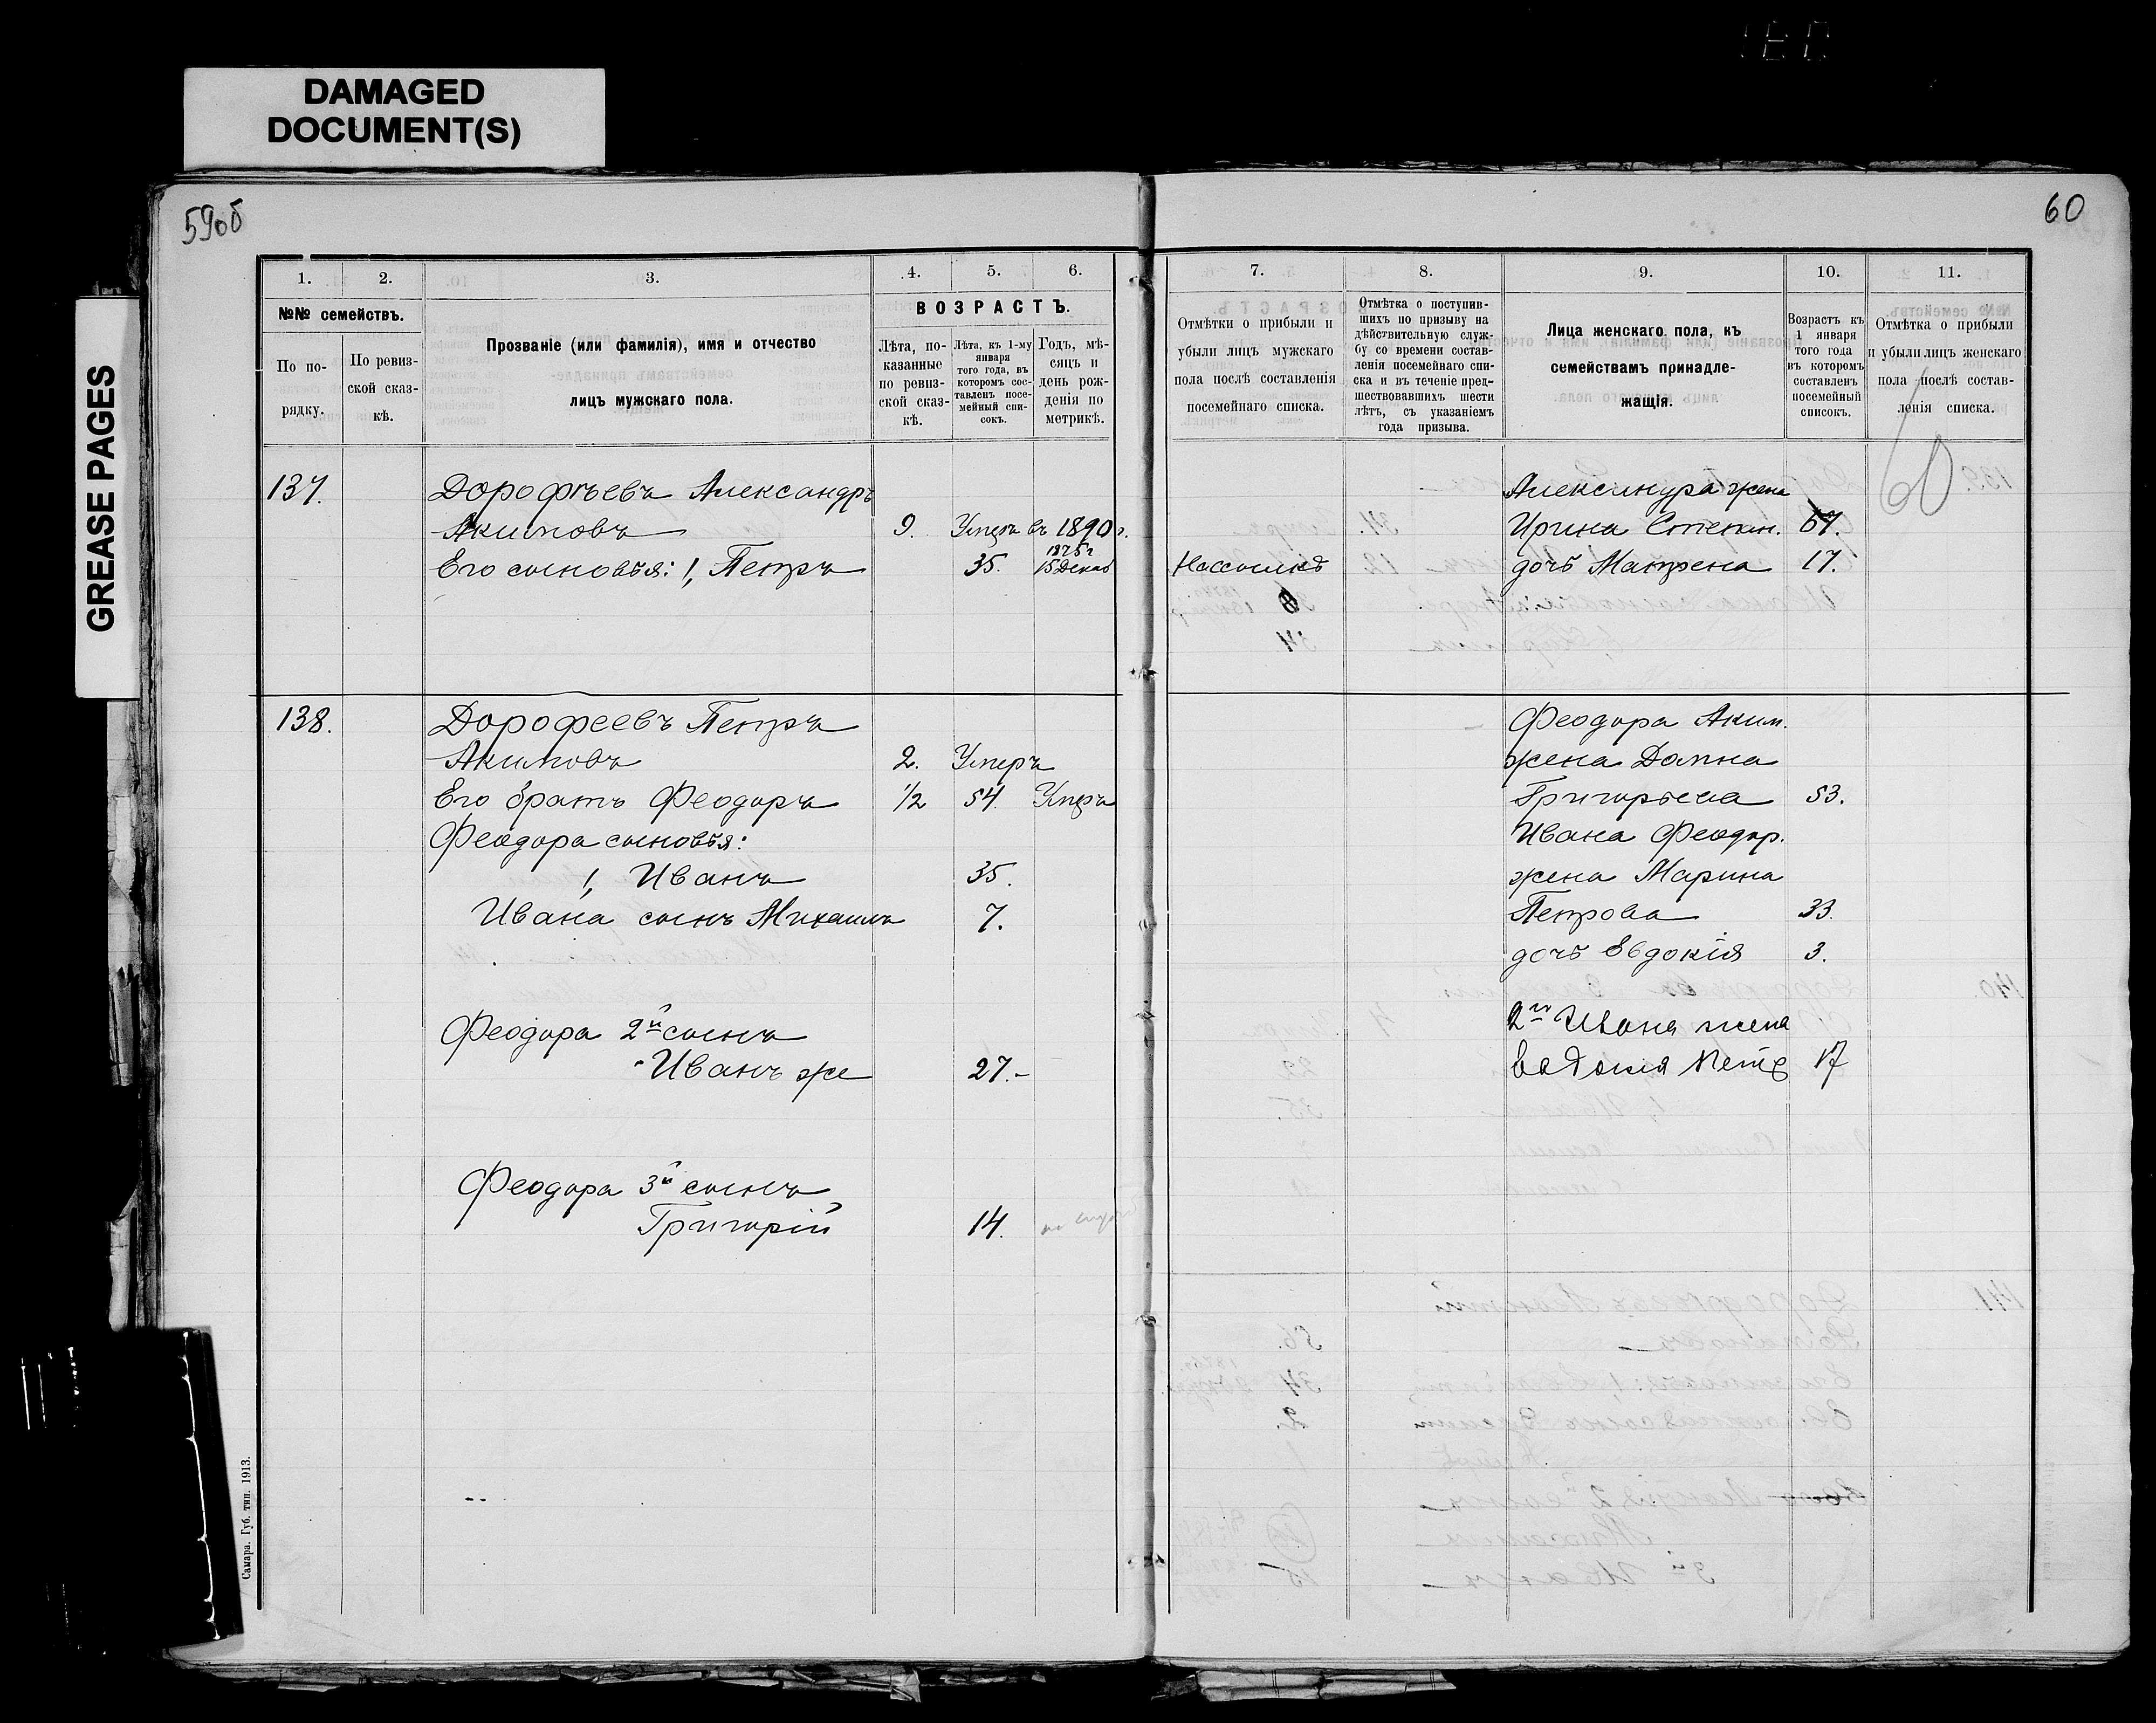 DAMAGED
DOCUMENT(S)
GREASE PAGES
59об
60
1.
2.
3.
4.
5.
6.
№№ семействъ.
По по-
рядку.
По ревиз-
ской сказ-
кѣ.
Прозваніе (или фамилія), имя и отчество
лицъ мужскаго пола.
ВОЗРАСТЪ.
Лѣта, по-
казанные
по ревиз-
ской сказ-
кѣ.
Лѣта, къ 1-му
января
того года, въ
которомъ сос-
тавленъ посе-
мейный спи-
сокъ.
Годъ, мѣ-
сяцъ и
день рож-
денія по
метрикѣ.
7.
8.
9.
10.
11.
Отмѣтки о прибыли и
убыли лицъ мужскаго
пола послѣ составленія
посемейнаго списка.
Отмѣтка о поступив-
шихъ по призыву на
дѣйствительную служ-
бу со времени состав-
ленія посемейнаго спи-
ска и въ теченіе пред-
шествовавшихъ шести
лѣтъ, съ указаніемъ
года призыва.
Лица женскаго пола, къ
семействамъ принадле-
жащія.
Возрастъ къ
1 января
того года
въ которомъ
составленъ
посемейный
списокъ.
Отмѣтка о прибыли
и убыли лицъ женскаго
пола послѣ состав-
ленія списка.
60
137.
Дорофѣевъ Александръ
Акимовъ 9. Умеръ въ 1890 г.
1875 г
Его сыновья: 1, Петръ 35. 15 Декаб
Александра жена
Ирина Степан. 67.
дочь Матрена 17.
138.
Дорофеевъ Петръ
Акимовъ 2. Умеръ
Его братъ Феодоръ 1/2 54. Умеръ
Феодора сыновья:
1, Иванъ 35.
Ивана сынъ Михаилъ 7.
Феодора 2й сынъ
Иванъ же 27.-
Феодора 3й сынъ
Григорій 14.
Феодора Аким.
жена Домна
Григорьева 53.
Ивана Феодор.
жена Марина
Петрова 33.
дочь Евдокія 3.
2го Ивана жена
Евдокия Петр 17
Самара. Губ. тип. 1913.